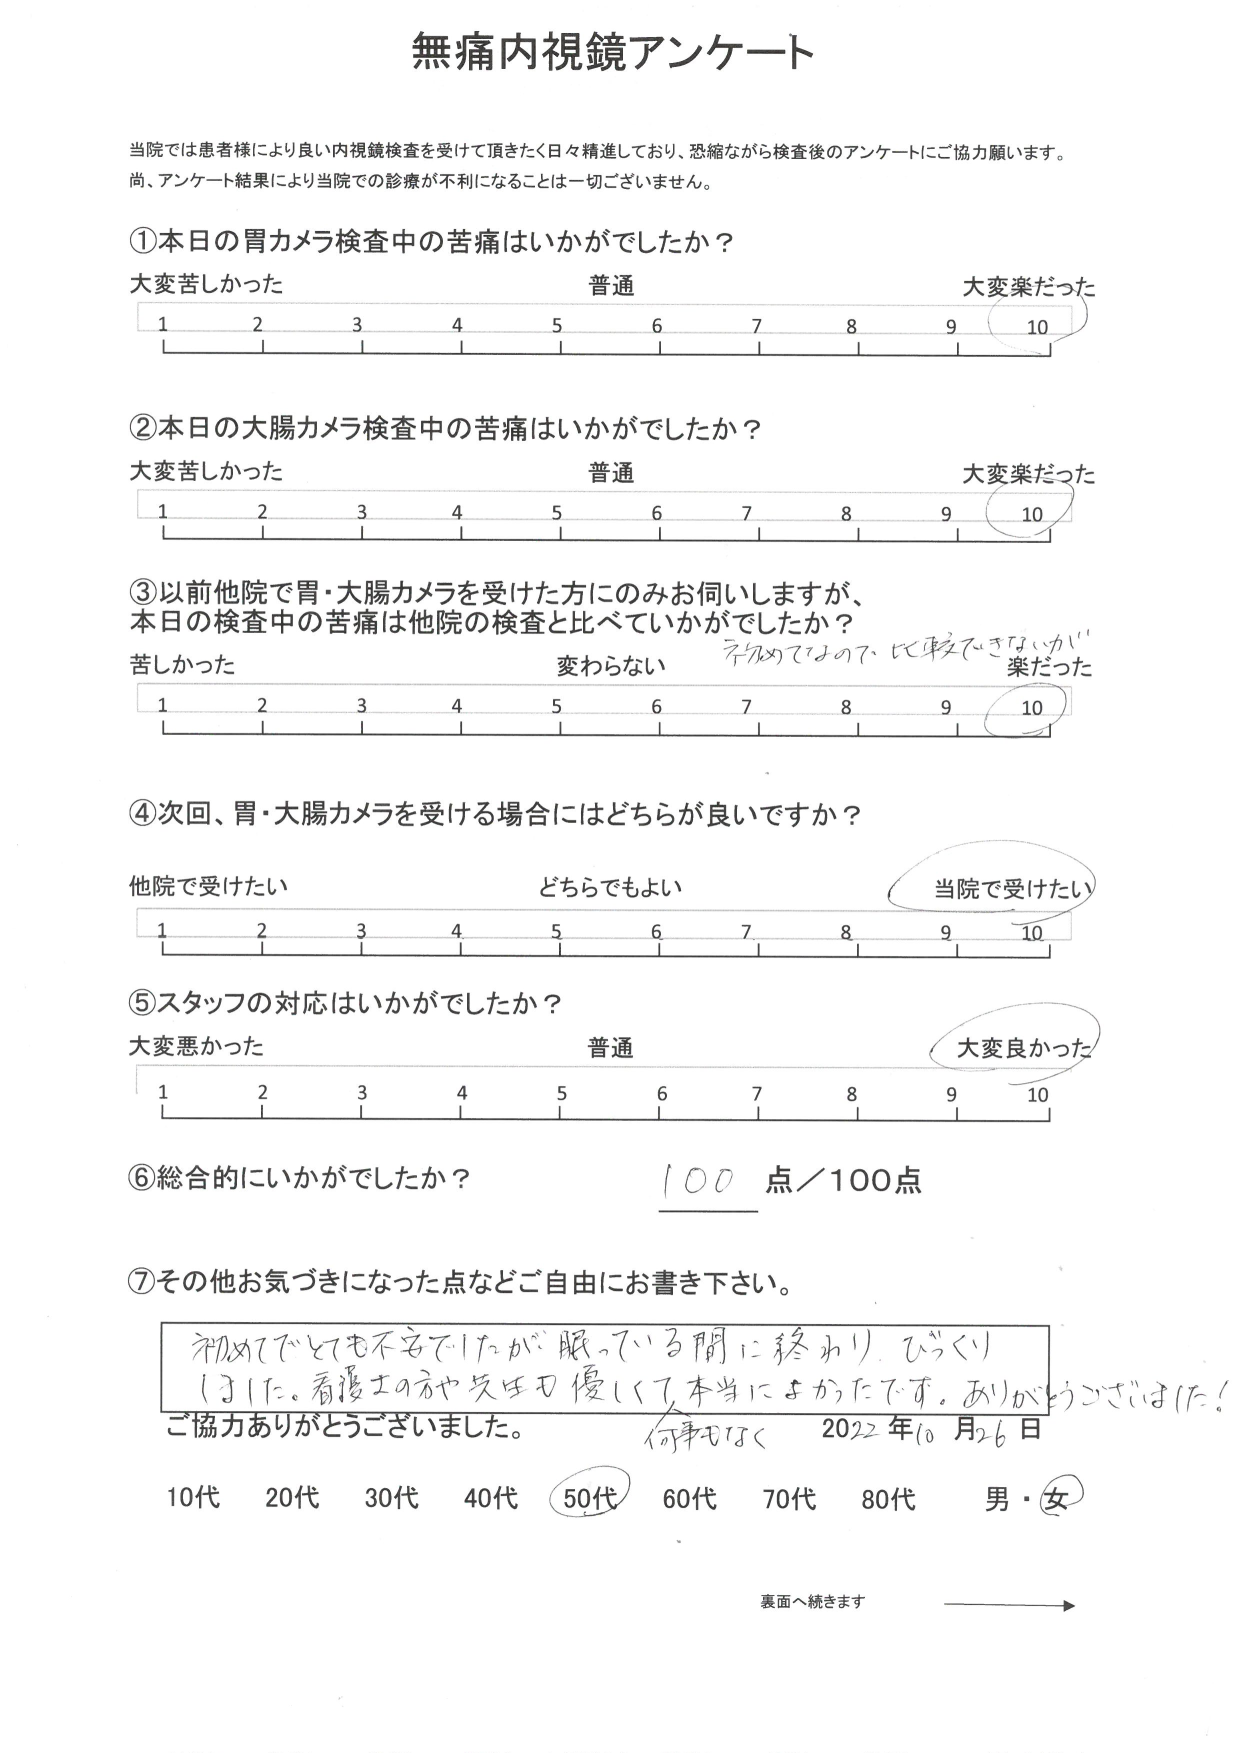 無痛内視鏡アンケート
当院では患者様により良い内視鏡検査を受けて頂きたく日々精進しており、恐縮ながら検査後のアンケートにご協力願います。
尚、アンケート結果により当院での診療が不利になることは一切ございません。
①本日の胃カメラ検査中の苦痛はいかがでしたか？
大変苦しかった 普通 大変楽だった
1 2 3 4 5 6 7 8 9 10
②本日の大腸カメラ検査中の苦痛はいかがでしたか？
大変苦しかった 普通 大変楽だった
1 2 3 4 5 6 7 8 9 10
③以前他院で胃・大腸カメラを受けた方にのみお伺いしますが、
本日の検査中の苦痛は他院の検査と比べていかがでしたか？
初めてなので比較できないが
苦しかった 変わらない 楽だった
1 2 3 4 5 6 7 8 9 10
④次回、胃・大腸カメラを受ける場合にはどちらが良いですか？
他院で受けたい どちらでもよい 当院で受けたい
1 2 3 4 5 6 7 8 9 10
⑤スタッフの対応はいかがでしたか？
大変悪かった 普通 大変良かった
1 2 3 4 5 6 7 8 9 10
⑥総合的にいかがでしたか？ 100 点／100点
⑦その他お気づきになった点などご自由にお書き下さい。
初めてでとても不安でしたが眠っている間に終わり びっくり
しました。看護士の方や先生も優しくて本当によかったです。ありがとうございました！
何事もなく
ご協力ありがとうございました。 2022年10月26日
10代 20代 30代 40代 50代 60代 70代 80代 男・女
裏面へ続きます